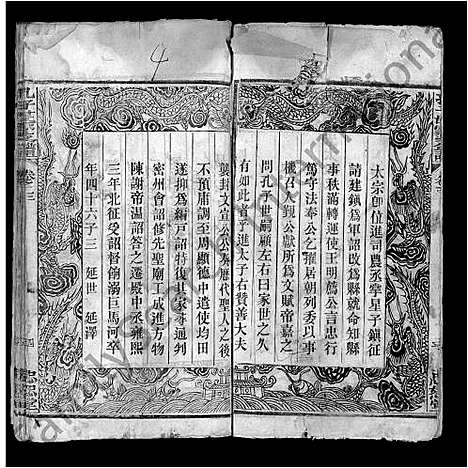 太宗即位進司農丞掌星子鎮征
請建鎮爲軍詔改爲縣就命知縣
事秋滿轉運使王明薦公言忠行
篤守法奉公乞擢居朝列委以事
機召入觀公獻所爲文賦帝嘉之
問孔氏世嗣顧左右曰家世之久
有如此者乎進太子右贊善大夫
襲封文宣公公奏歷代聖人之後
不預庸調至周顯德中遣使均田
遂抑爲編戶詔特復其家等通判
密州會詔修先聖廟工成進方物
陳謝帝溫詔答之遷殿中丞雍熙
三年北征受詔督餉溺巨馬河卒
年四十六子三 延世 延澤
4